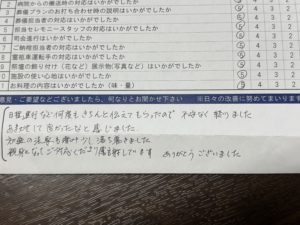 2 病院からの搬送時の対応はいかがでしたか 5 4 3 2
3 葬儀プランのお打ち合わせ時の説明はいかがでしたか 5 4 3 2
4 担当者の対応はいかがでしたか 5 4 3 2
5 担当セレモニースタッフの対応はいかがでしたか 5 4 3 2
6 司会進行はいかがでしたか 5 4 3 2
7 ご納棺担当者の対応はいかがでしたか 5 4 3 2
8 霊柩車運転手の対応はいかがでしたか 5 4 3 2
9 祭壇の飾り付け(花など)展示物(写真など)はいかがでしたか 5 4 3 2
施設の使い心地はいかがでしたか 5 4 3 2
お料理の内容はいかがでしたか(味・量) 5 4 3 2
意見・ご要望などございましたら、何なりとお聞かせ下さい ※日々の改善に努めてまいります
など何度もきちんと伝えてもらったので 不安なく 終りました
おまかせして良かったなと 感じました
も 少し 落ち着きました
ありがとうございました